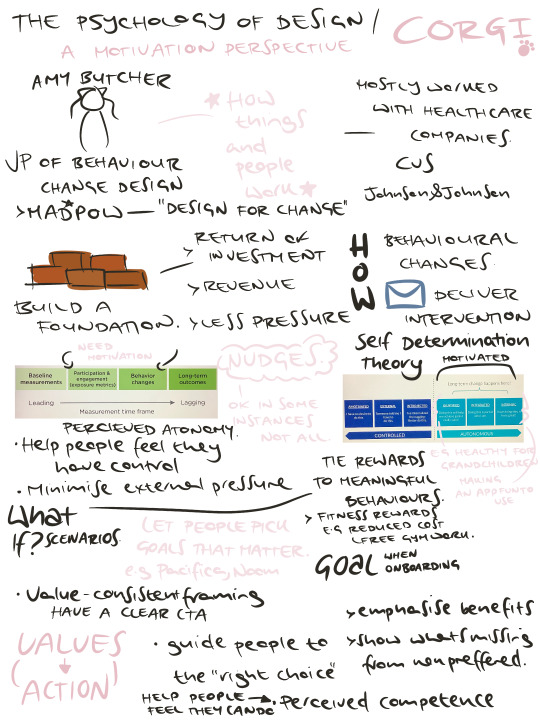 THE PSYCHOLOGY OF DESIGN/
A MOTIVATION PERSPECTIVE
CORGI
AMY BUTCHER
VP OF BEHAVIOUR
CHANGE DESIGN
>MADPOW — "DESIGN FOR CHANGE"
★ How
things
and
people
work ★
MOSTLY WORKED
WITH HEALTHCARE
— COMPANIES.
CVS
Johnson&Johnson
BUILD A
FOUNDATION.
> RETURN OF
INVESTMENT
> REVENUE
>LESS PRESSURE
HOW
BEHAVIOURAL
CHANGES.
DELIVER
INTERVENTION
NEED
MOTIVATION
Baseline
measurements
Participation &
engagement
(exposure metrics)
Behavior
changes
Long-term
outcomes
Leading
Lagging
Measurement time frame
NUDGES
OK IN SOME
INSTANCES
NOT ALL
Self Determination
Theory
MOTIVATED
Long-term change happens here!
CONTROLLED
AUTONOMOUS
e.g HEALTHY FOR
GRANDCHILDREN
MAKING
AN APP FUN TO
USE
PERCIEVED ATONOMY.
• Help people feel they
have control
• Minimise external pressure
TIE REWARDS
TO MEANINGFUL
BEHAVIOURS.
> FITNESS REWARDS
E.G REDUCED COST
/FREE GYMWORK.
What
If? SCENARIOS
LET PEOPLE PICK
GOALS THAT MATTER.
e.g Pacifica, Noom
GOAL WHEN
ONBOARDING
• Value-consistent framing
HAVE A CLEAR CTA
VALUES
(ACTION)
• guide people to
the "right choice"
>emphasise benefits
>show whats missing
from nonpreffered.
HELP PEOPLE
FEEL THEY CAN DO
• Perceived competence